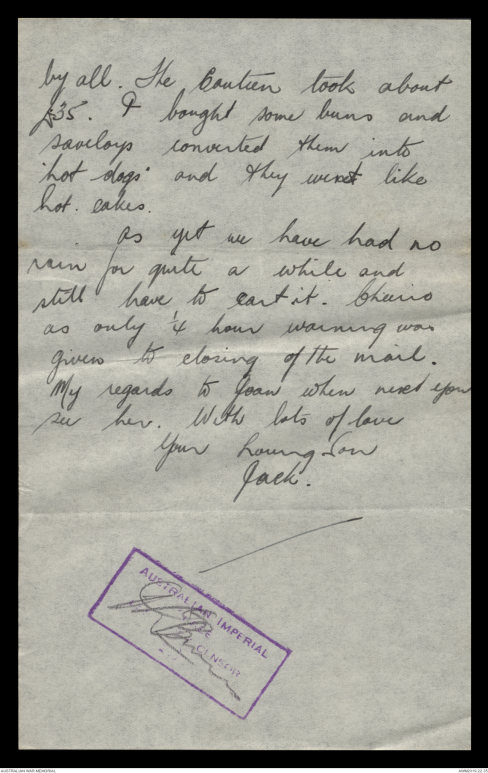 by all. The Canteen took about
£35. I bought some buns and
saveloys converted them into
'hot dogs' and they went like
hot cakes.
As yet we have had no
rain for quite a while and
still have to cart it. Cheerio
as only ¼ hour warning was
given to closing of the mail.
My regards to Joan when next you
see her. With lots of love
Your Loving Son
Jack.
AUSTRALIAN IMPERIAL
CENSOR
AUSTRALIAN WAR MEMORIAL